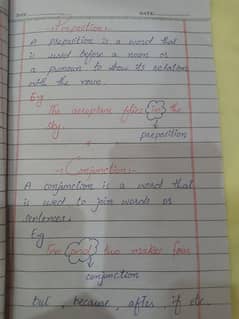 DAY
DATE
Preposition:
A preposition is a word that
is used before a noun or
a pronoun to show its relation
with the
Eg
The aeroplane flies in the
sky.
preposition
Conjunction:
A conjunction is a word that
is used to join words or
sentences.
Eg
Two and two makes four
conjunction
but, because, after, if etc.